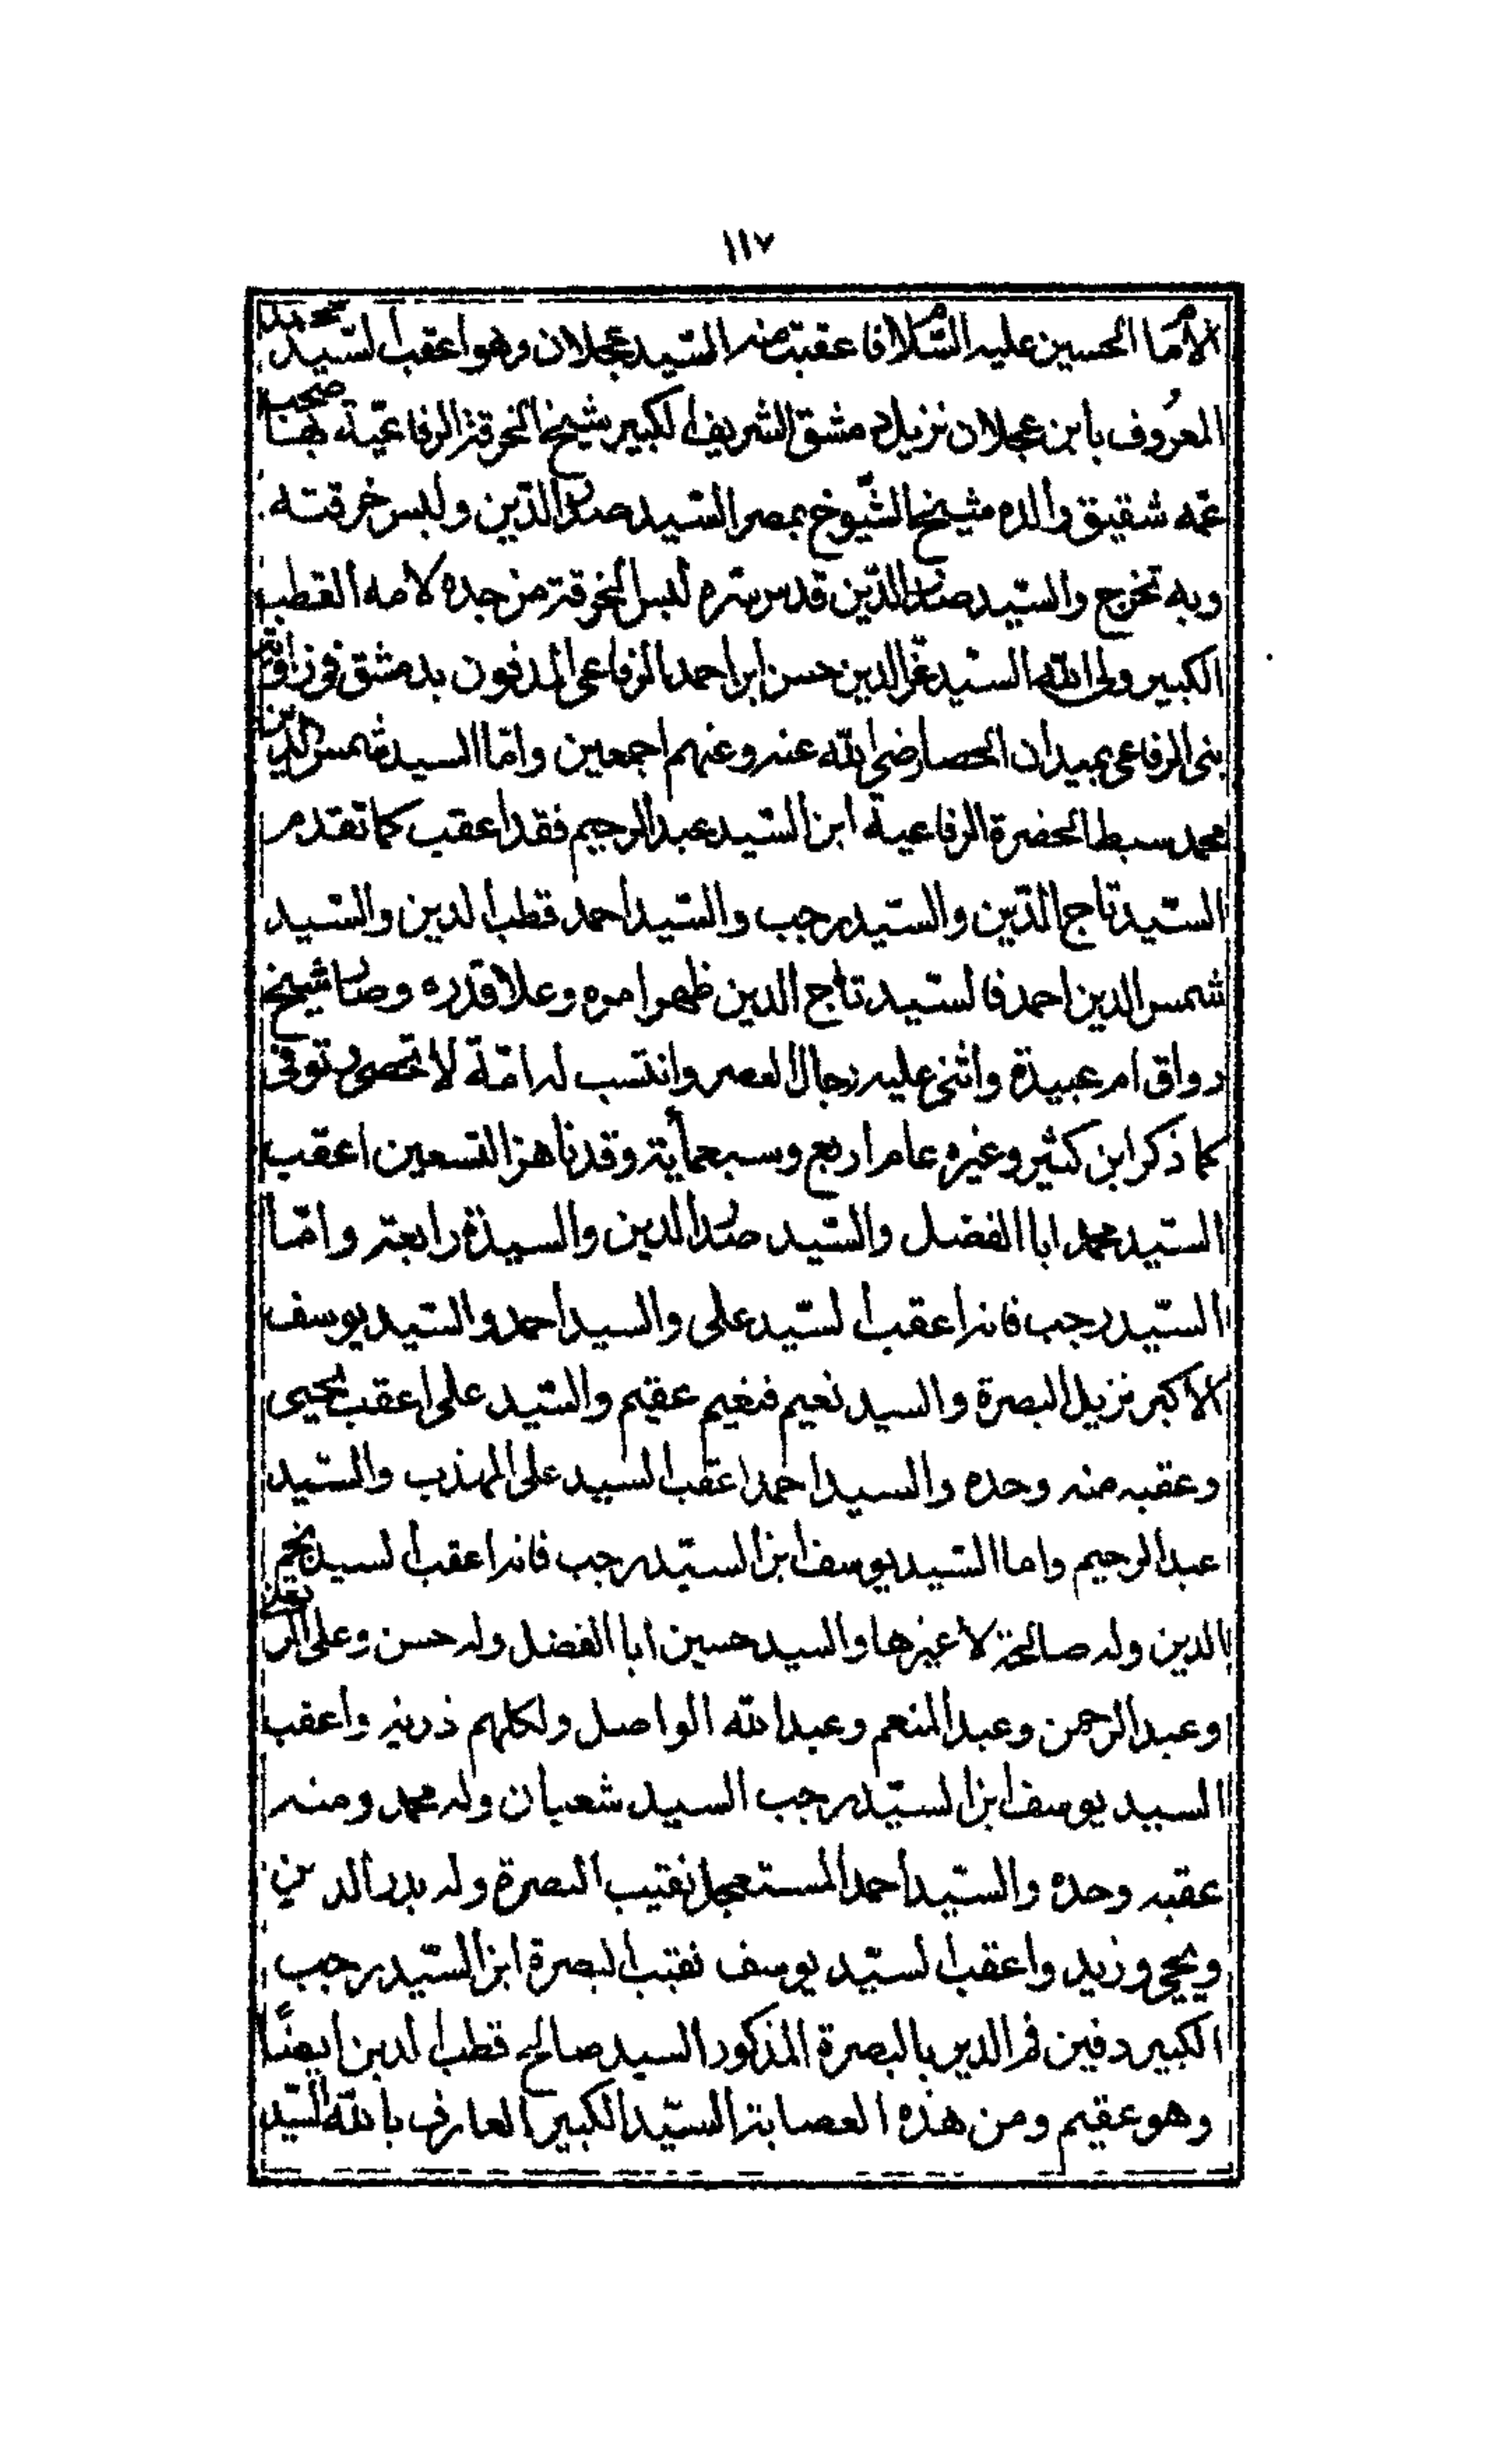 ١١٧
الامام الحسين عليه السلام فاعقبت منه السيد عجلان وهو اعقب السيد محمد
المعروف بابن عجلان نزيل دمشق الشريف الكبير شيخ الخرقة الرفاعية بها صحب
عمه شقيق والده مشيخ الشيوخ بمصر السيد صدر الدين ولبس خرقته
وبه تخرج والسيد صدر الدين قدس سره لبس الخرقة من جده لامه القطب
الكبير ولي الله السيد عز الدين حسن ابر احمد الرفاعي المدفون بدمشق في زاوية
بني الرفاعي بميدان الحصا رضي الله عنه وعنهم اجمعين واما السيد شمس الدين
محمد سبط الحضرة الرفاعية ابن السيد عبد الرحيم فقد اعقب كما تقدم
السيد تاج الدين والسيد رجب والسيد احمد قطب الدين والسيد
شمس الدين احمد فالسيد تاج الدين ظهر امره وعلا قدره وصار شيخ
رواق ام عبيدة واثنى عليه رجال العصر وانتسب له امة لا تحصى توفي
كما ذكر ابن كثير وغيره عام اربع وسبعمأية وقد ناهز التسعين اعقب
السيد محمد ابا الفضل والسيد صدر الدين والسيدة رابعة واما
السيد رجب فانه اعقب السيد علي والسيد احمد والسيد يوسف
الاكبر نزيل البصرة والسيد نعيم فنعيم عقيم والسيد على اعقب يحيى
وعقبه منه وحده والسيد احمد اعقب السيد على المهذب والسيد
عبد الرحيم واما السيد يوسف ابن السيد رجب فانه اعقب السيد نجم
الدين وله صالحة لا غيرها والسيد حسين ابا الفضل وله حسن وعلى
وعبد الرحمن وعبد المنعم وعبد الله الواصل ولكلهم ذرية واعقب
السيد يوسف ابن السيد رجب السيد شعبان وله محمد ومنه
عقبه وحده والسيد احمد المستعجل نقيب البصرة وله بدر الدين
ويحيى وزيد واعقب السيد يوسف نقيب البصرة ابن السيد رجب
الكبير دفين فم الدير بالبصرة المذكور السيد صالح قطب الدين ايضًا
وهو عقيم ومن هذه العصابة السيد الكبير العارف بالله السيد